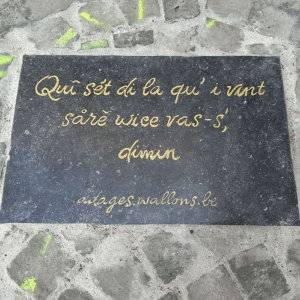 Quî sét di la qu' i vint
sårè wice vas-s',
dimin
adages.wallons.be